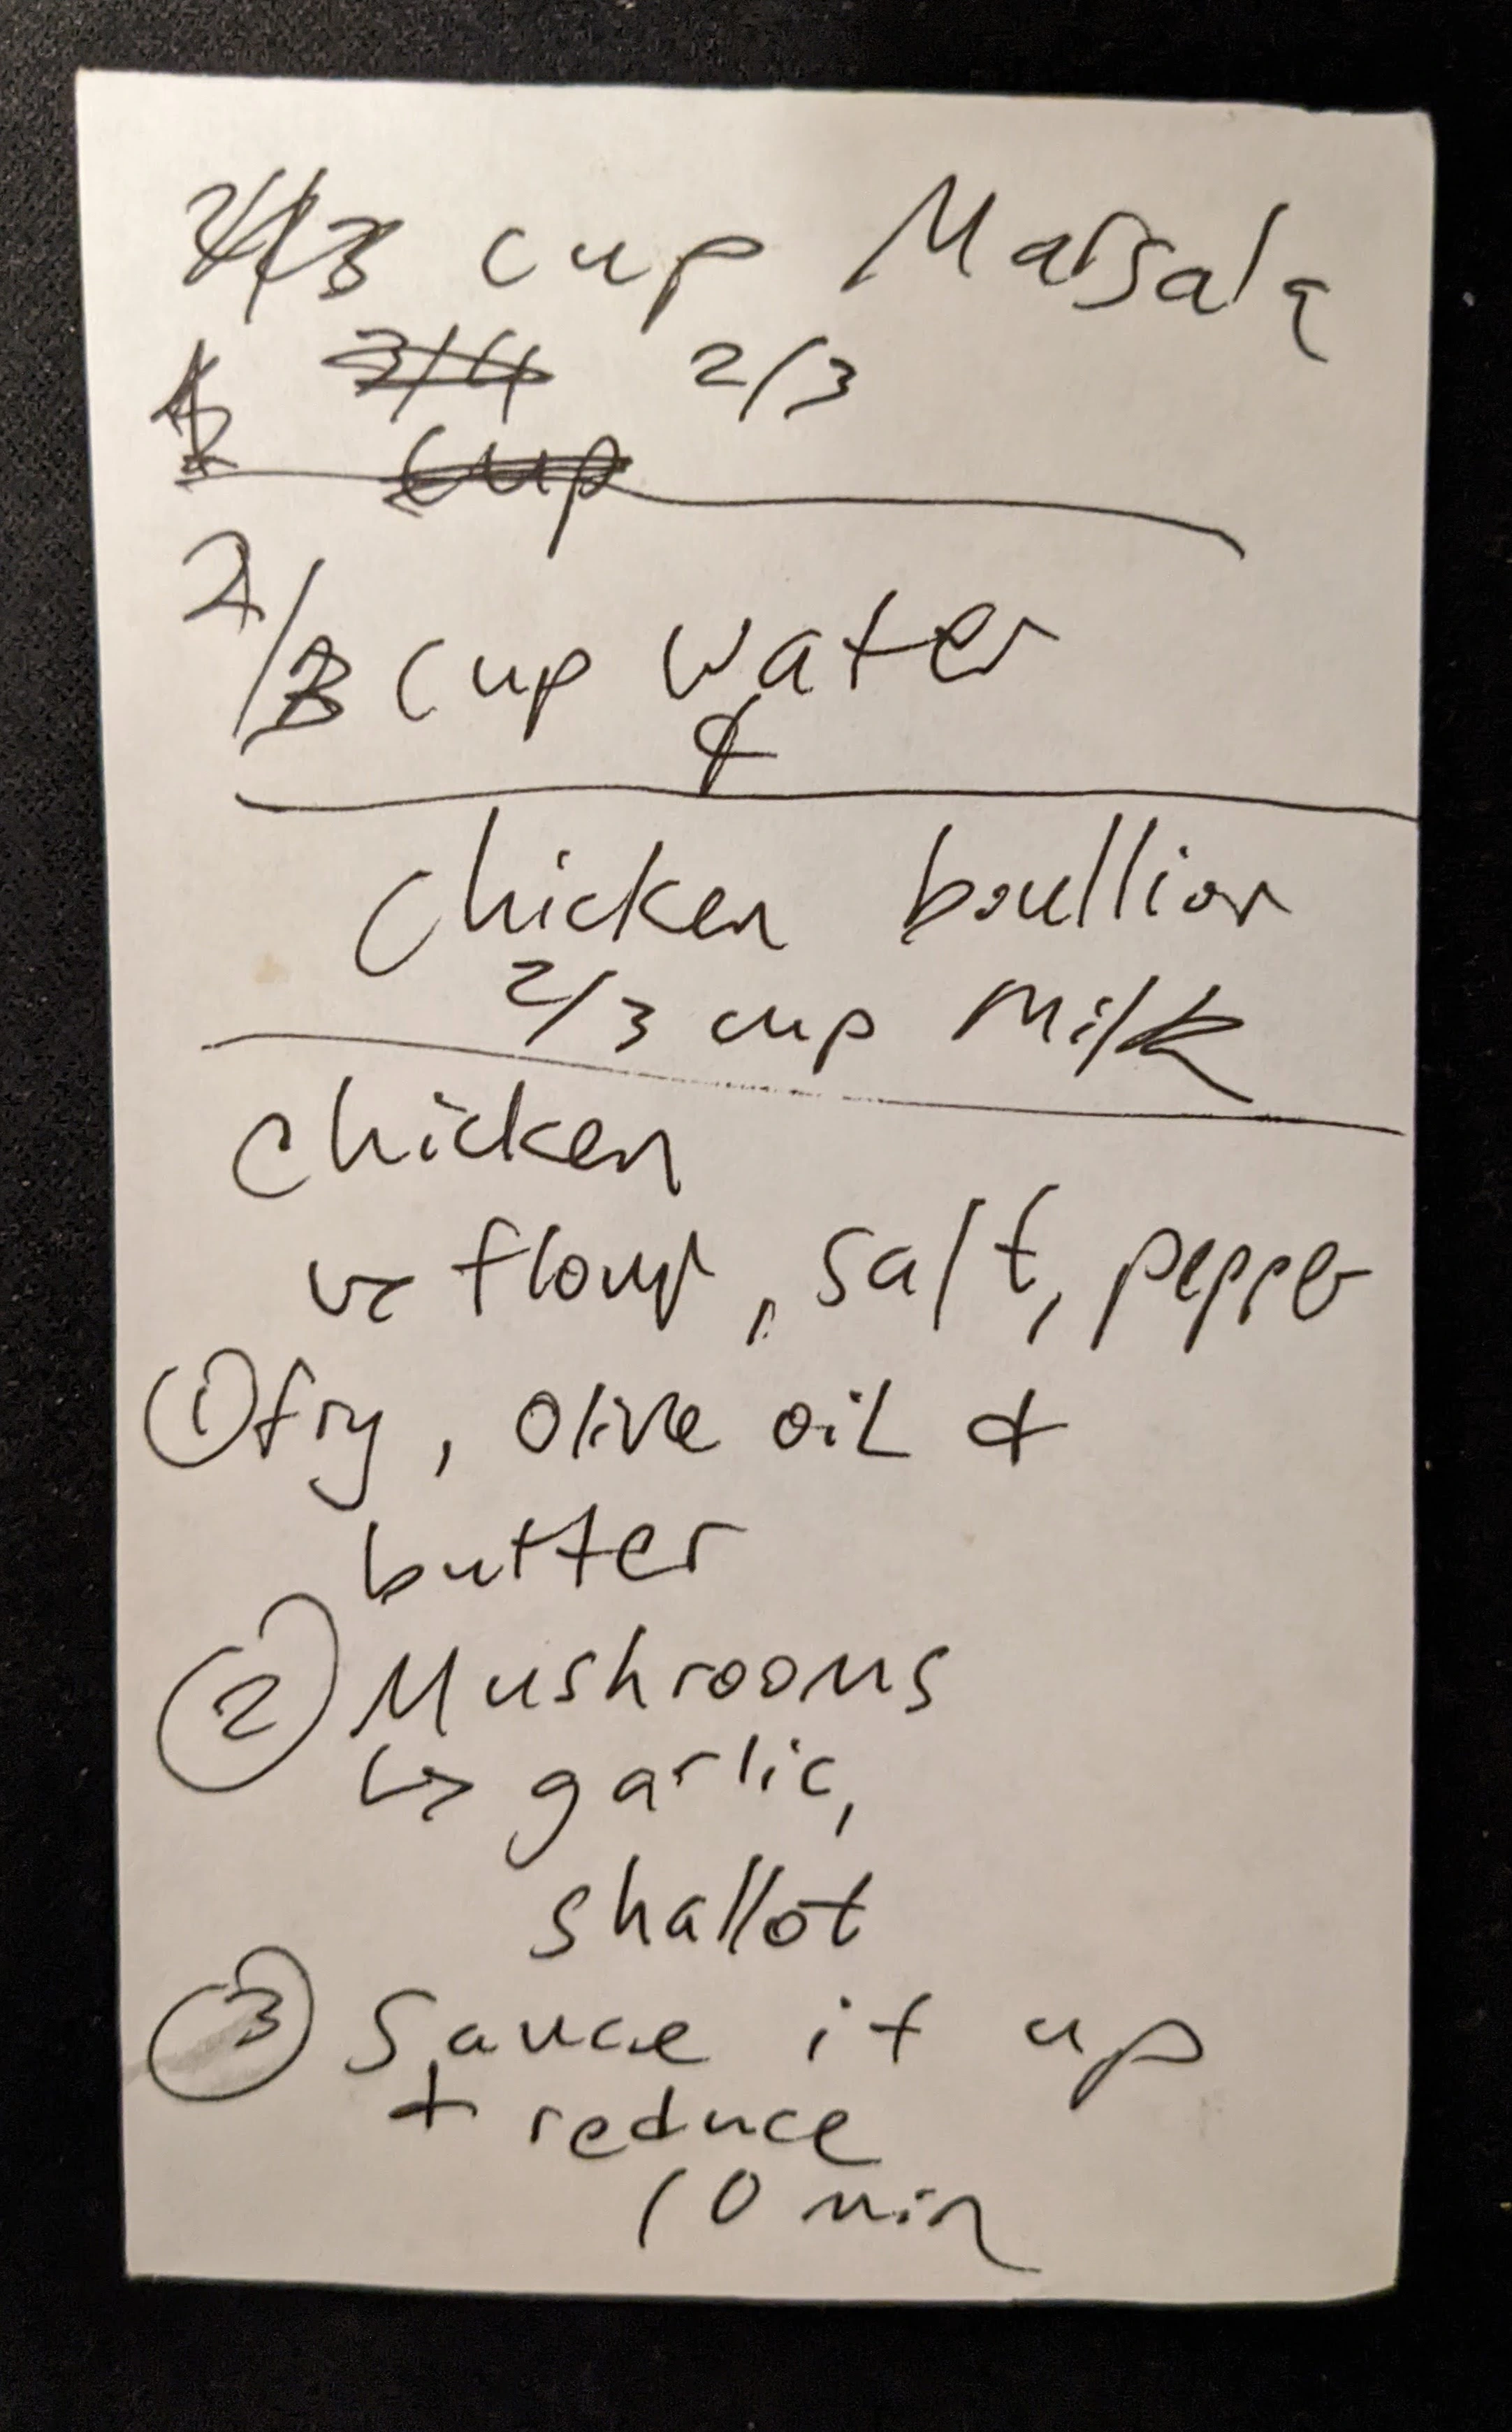 cup Marsala
2/3
2/3 cup water
&
chicken boullion
2/3 cup milk
chicken
flour, salt, pepper
① fry, olive oil &
butter
② Mushrooms
↳ garlic,
shallot
③ Sauce it up
+ reduce
10 min